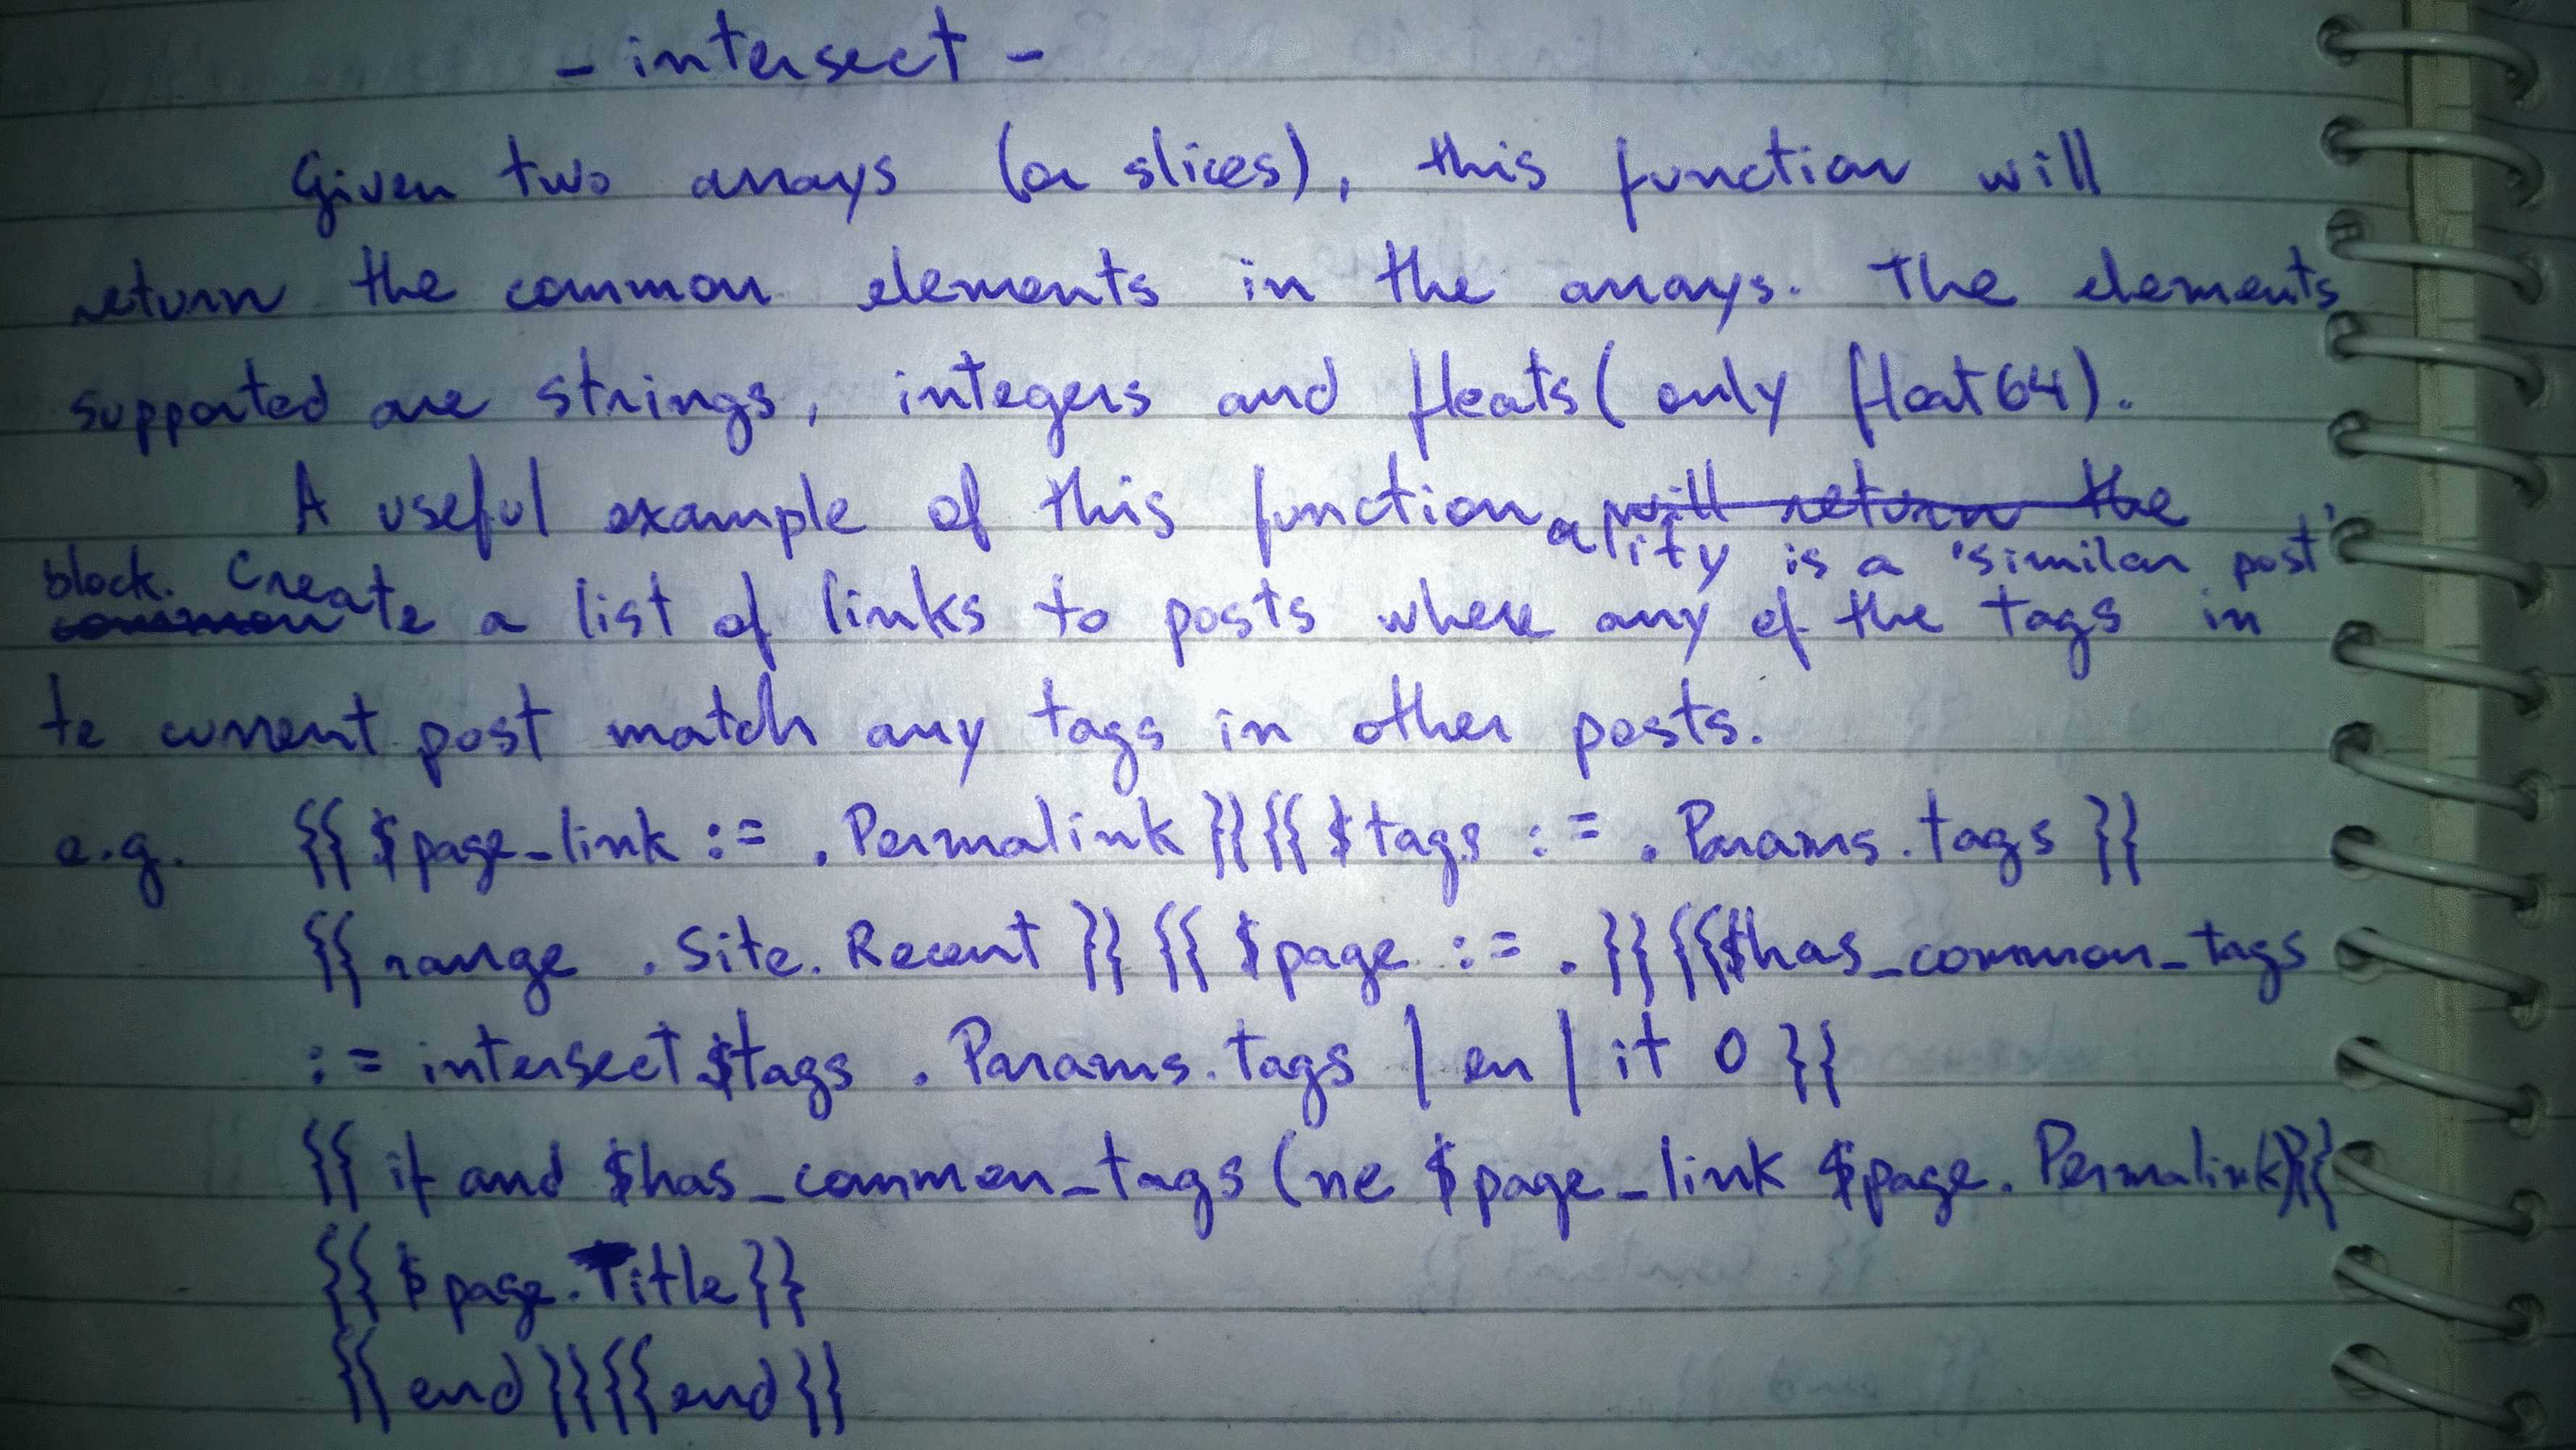 - intersect -
Given two arrays (or slices), this function will
return the common elements in the arrays. The elements
supported are strings, integers and floats (only float64).
A useful example of this function will return the
ality is a 'similar post'
block. Create a list of links to posts where any of the tags in
common
te current post match any tags in other posts.
e.g. {{ $page_link := .Permalink }}{{ $tags := .Params.tags }}
{{ range .Site.Recent }}{{ $page := . }}{{ $has_common_tags
:= intersect $tags .Params.tags | en | it 0 }}
{{ if and $has_common_tags (ne $page_link $page.Permalink)}}
{{ $page.Title }}
{{ end }}{{ end }}